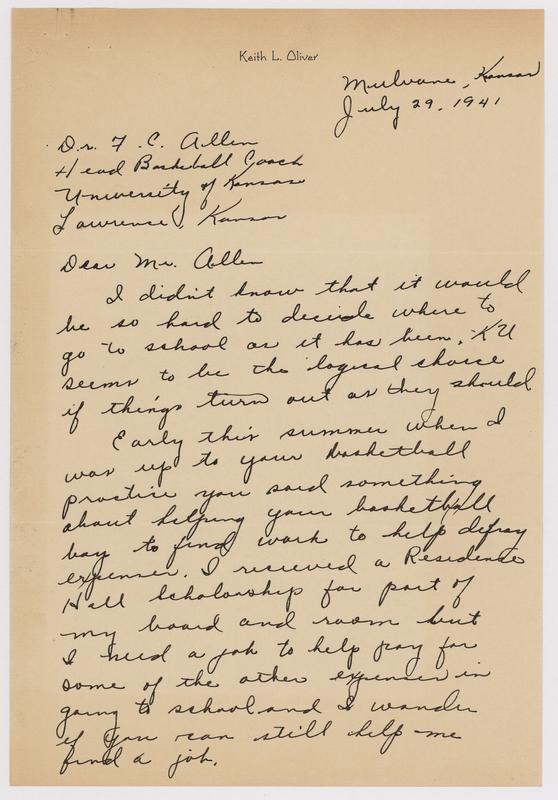 Keith L. Oliver
Mulvane, Kansas
July 29, 1941
Dr. F. C. Allen
Head Basketball Coach
University of Kansas
Lawrence, Kansas
Dear Mr. Allen
I didn't know that it would
be so hard to decide where to
go to school as it has been. KU
seems to be the logical choice
if things turn out as they should
Early this summer when I
was up to your basketball
practice you said something
about helping your basketball
boy to find work to help defray
expenses. I recieved a Residence
Hall Scholarship for part of
my board and room but
I need a job to help pay for
some of the other expenses in
going to school and I wonder
if you can still help me
find a job.